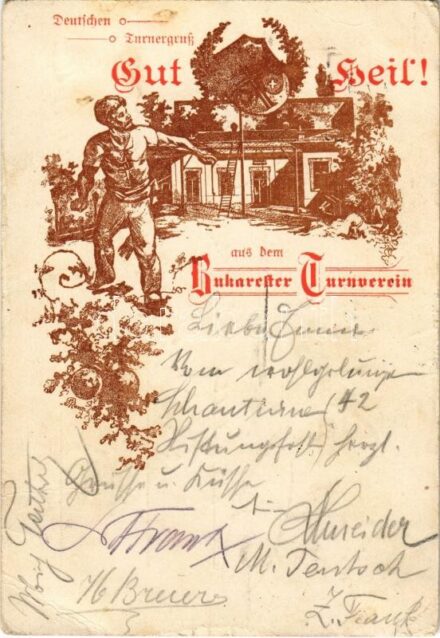 Deutschen
Turnergruß
Gut Heil!
aus dem
Bukarester Turnverein
Liebe
Vom wohlgelungenen
42
Stiftungsfest herzl.
Grüsse u. Küsse
Frank
Schneider
M. Teutsch
H Breuer
Z. Frank